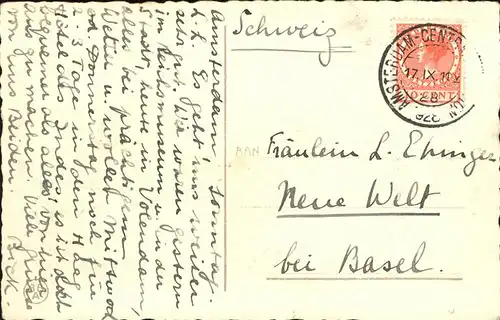 Amsterdam, Sonntag.
L. L. Es geht uns weiter
sehr gut. Wir waren gestern
im Reichsmuseum u. in der
Stadt, heute in Volendam,
alles bei prächtigem
Wetter u. wollen Mittwoch
od. Donnerstag noch für
2-3 Tage in den Haag
Hôtel des Indes, es ist doch
bequemer als alles von hier
aus zu machen. Viele Grüsse
von uns Beiden.
Schweiz
AMSTERDAM-CENTR
17.IX 11
28
928
CENT
Fräulein L. Ehinger
Neue Welt
bei Basel.